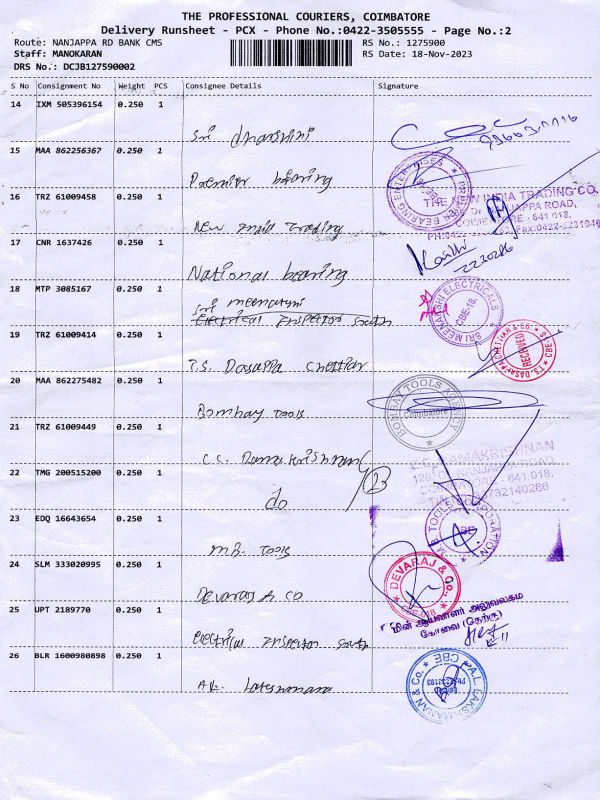 THE PROFESSIONAL COURIERS, COIMBATORE
Delivery Runsheet - PCX - Phone No.:0422-3505555 - Page No.:2
Route: NANJAPPA RD BANK CMS
RS No.: 1275900
Staff: MANOKARAN
RS Date: 18-Nov-2023
DRS No.: DCJB127590002
S No Consignment No Weight PCS Consignee Details Signature
14 IXM 505396154 0.250 1
Sri dharshini
15 MAA 862256367 0.250 1
Premier bearing
PREMIER BEARING ENTERPRISES
16 TRZ 61009458 0.250 1
New India Trading
THE NEW INDIA TRADING CO.
NANJAPPA ROAD,
641 018.
17 CNR 1637426 0.250 1
National bearing
2220286
18 MTP 3085167 0.250 1
Sri meenakshi
Electrical Inspector South
SRI MEENAKSHI ELECTRICALS
CBE-18
19 TRZ 61009414 0.250 1
T.S. Dasappa Chettiar
RECEIVED
20 MAA 862275482 0.250 1
Bombay Tools
BOMBAY TOOLS AGENCY
Coimbatore
21 TRZ 61009449 0.250 1
C.C. Ramakrishnan
RAMAKRISHNAN
NANJAPPA ROAD
COIMBATORE - 641 018.
22 TMG 200515200 0.250 1
do
23 EDQ 16643654 0.250 1
M.B. Tools
M.B. TOOLS CORPORATION
24 SLM 333020995 0.250 1
Devaraj & Co
DEVARAJ & Co.,
CBE-018
25 UPT 2189770 0.250 1
Electrical Inspector South
மின் ஆய்வாளர் அலுவலகம
கோவை (தெற்கு)
26 BLR 1600980898 0.250 1
A.L. Lakshmana
A.L. LAKSHMANAN & Co.
CBE